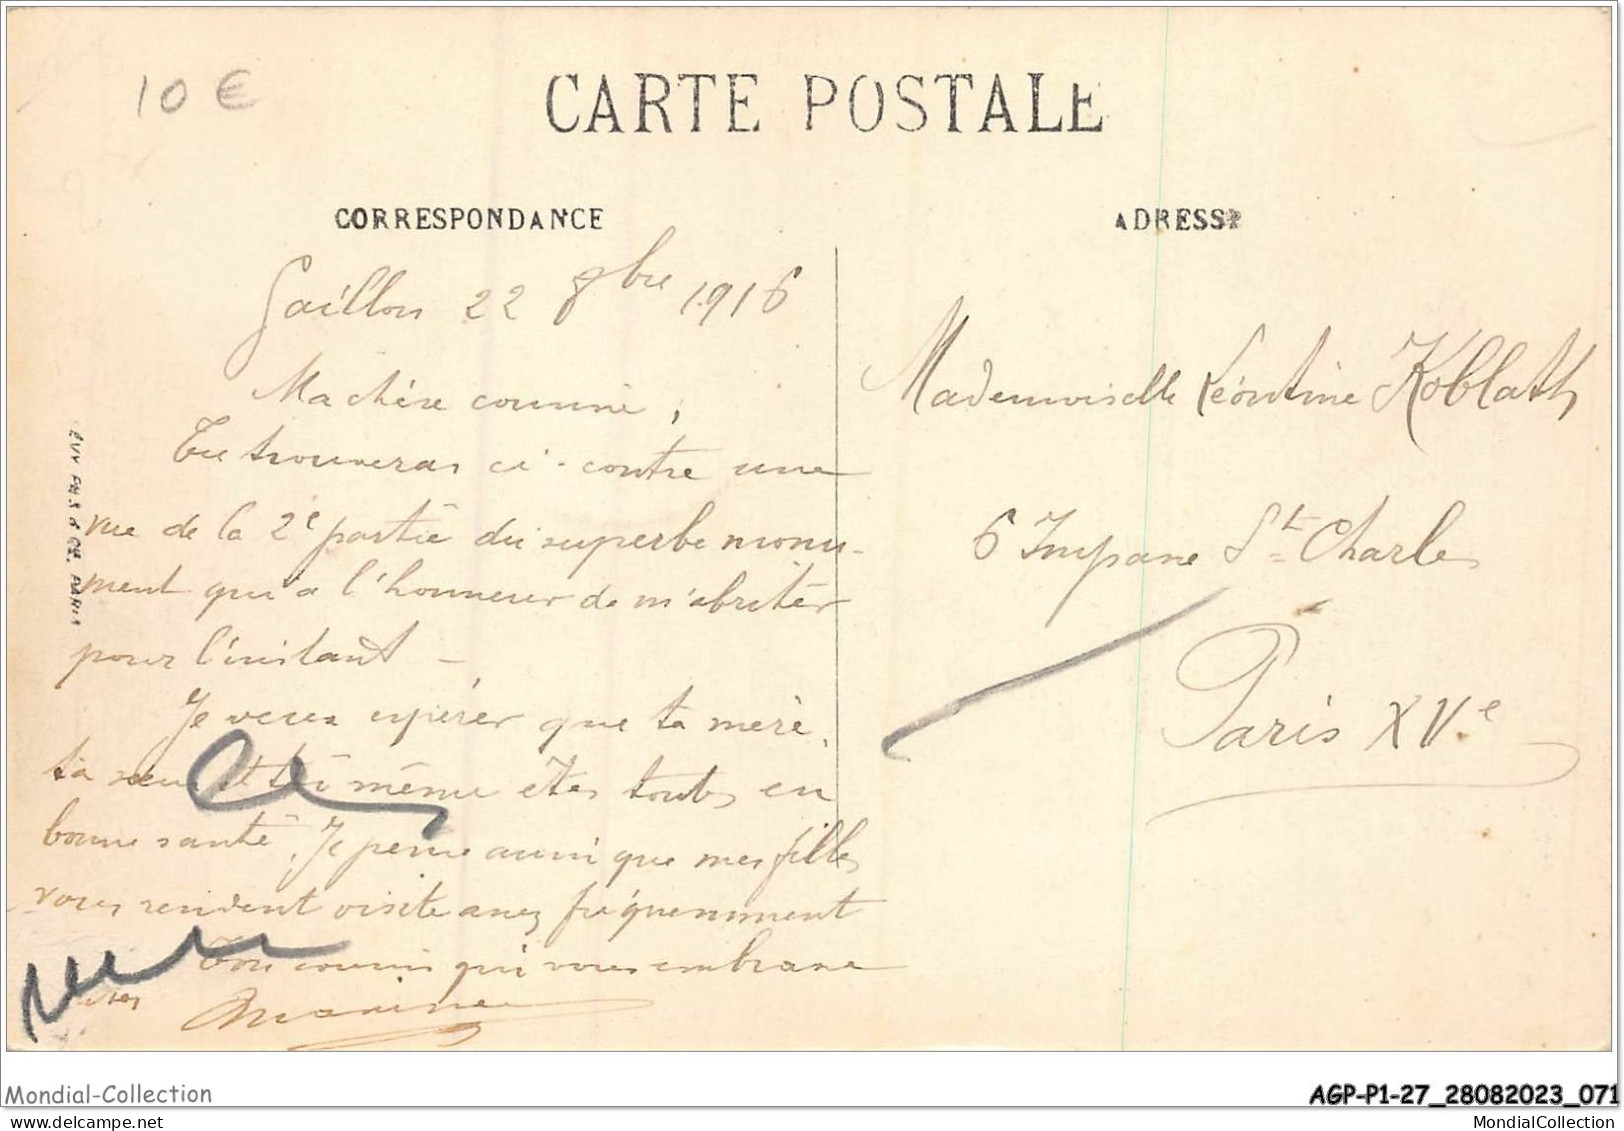 10 €
CARTE POSTALE
CORRESPONDANCE
ADRESSE
Gaillon 22 8bre 1916
Ma chère cousine,
Tu trouveras ci-contre une
vue de la 2e partie du superbe monu-
ment qui a l'honneur de m'abriter
pour l'instant –
Je veux espérer que ta mère,
ta sœur et toi même êtes toutes en
bonne santé. Je pense aussi que mes filles
vous rendent visite assez fréquemment
Ton cousin qui vous embrasse
Mademoiselle Léontine Koblath
6 Impasse St Charles
Paris XVe
PARIS
Mondial-Collection
AGP-P1-27_28082023_071
MondialCollection
MondialCollection